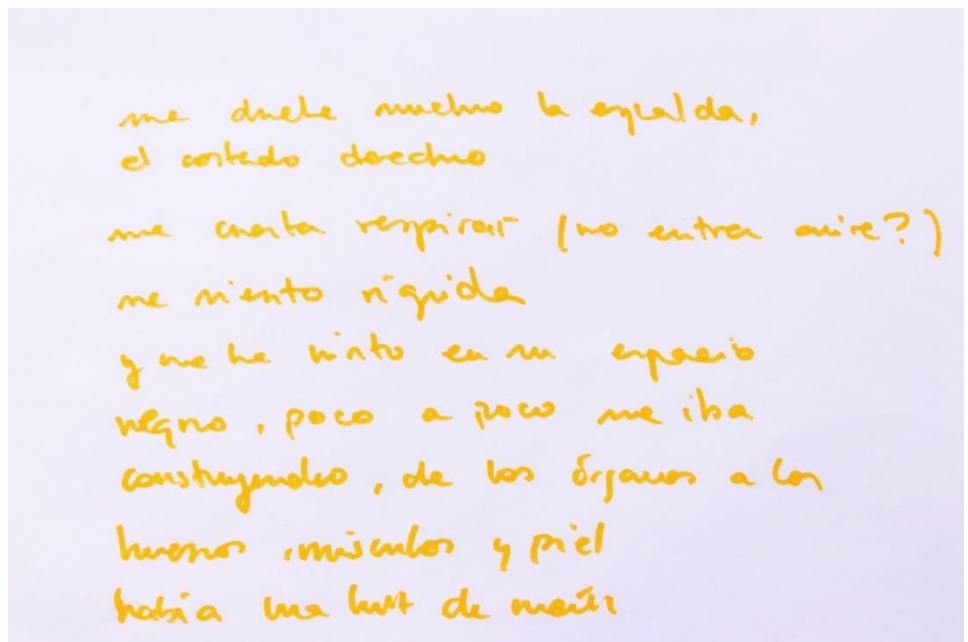 me duele mucho la espalda,
el costado derecho
me cuesta respirar (no entra aire?)
me siento rígida
y me he visto en un espacio
negro, poco a poco me iba
construyendo, de los órganos a los
huesos, músculos y piel
había una luz de